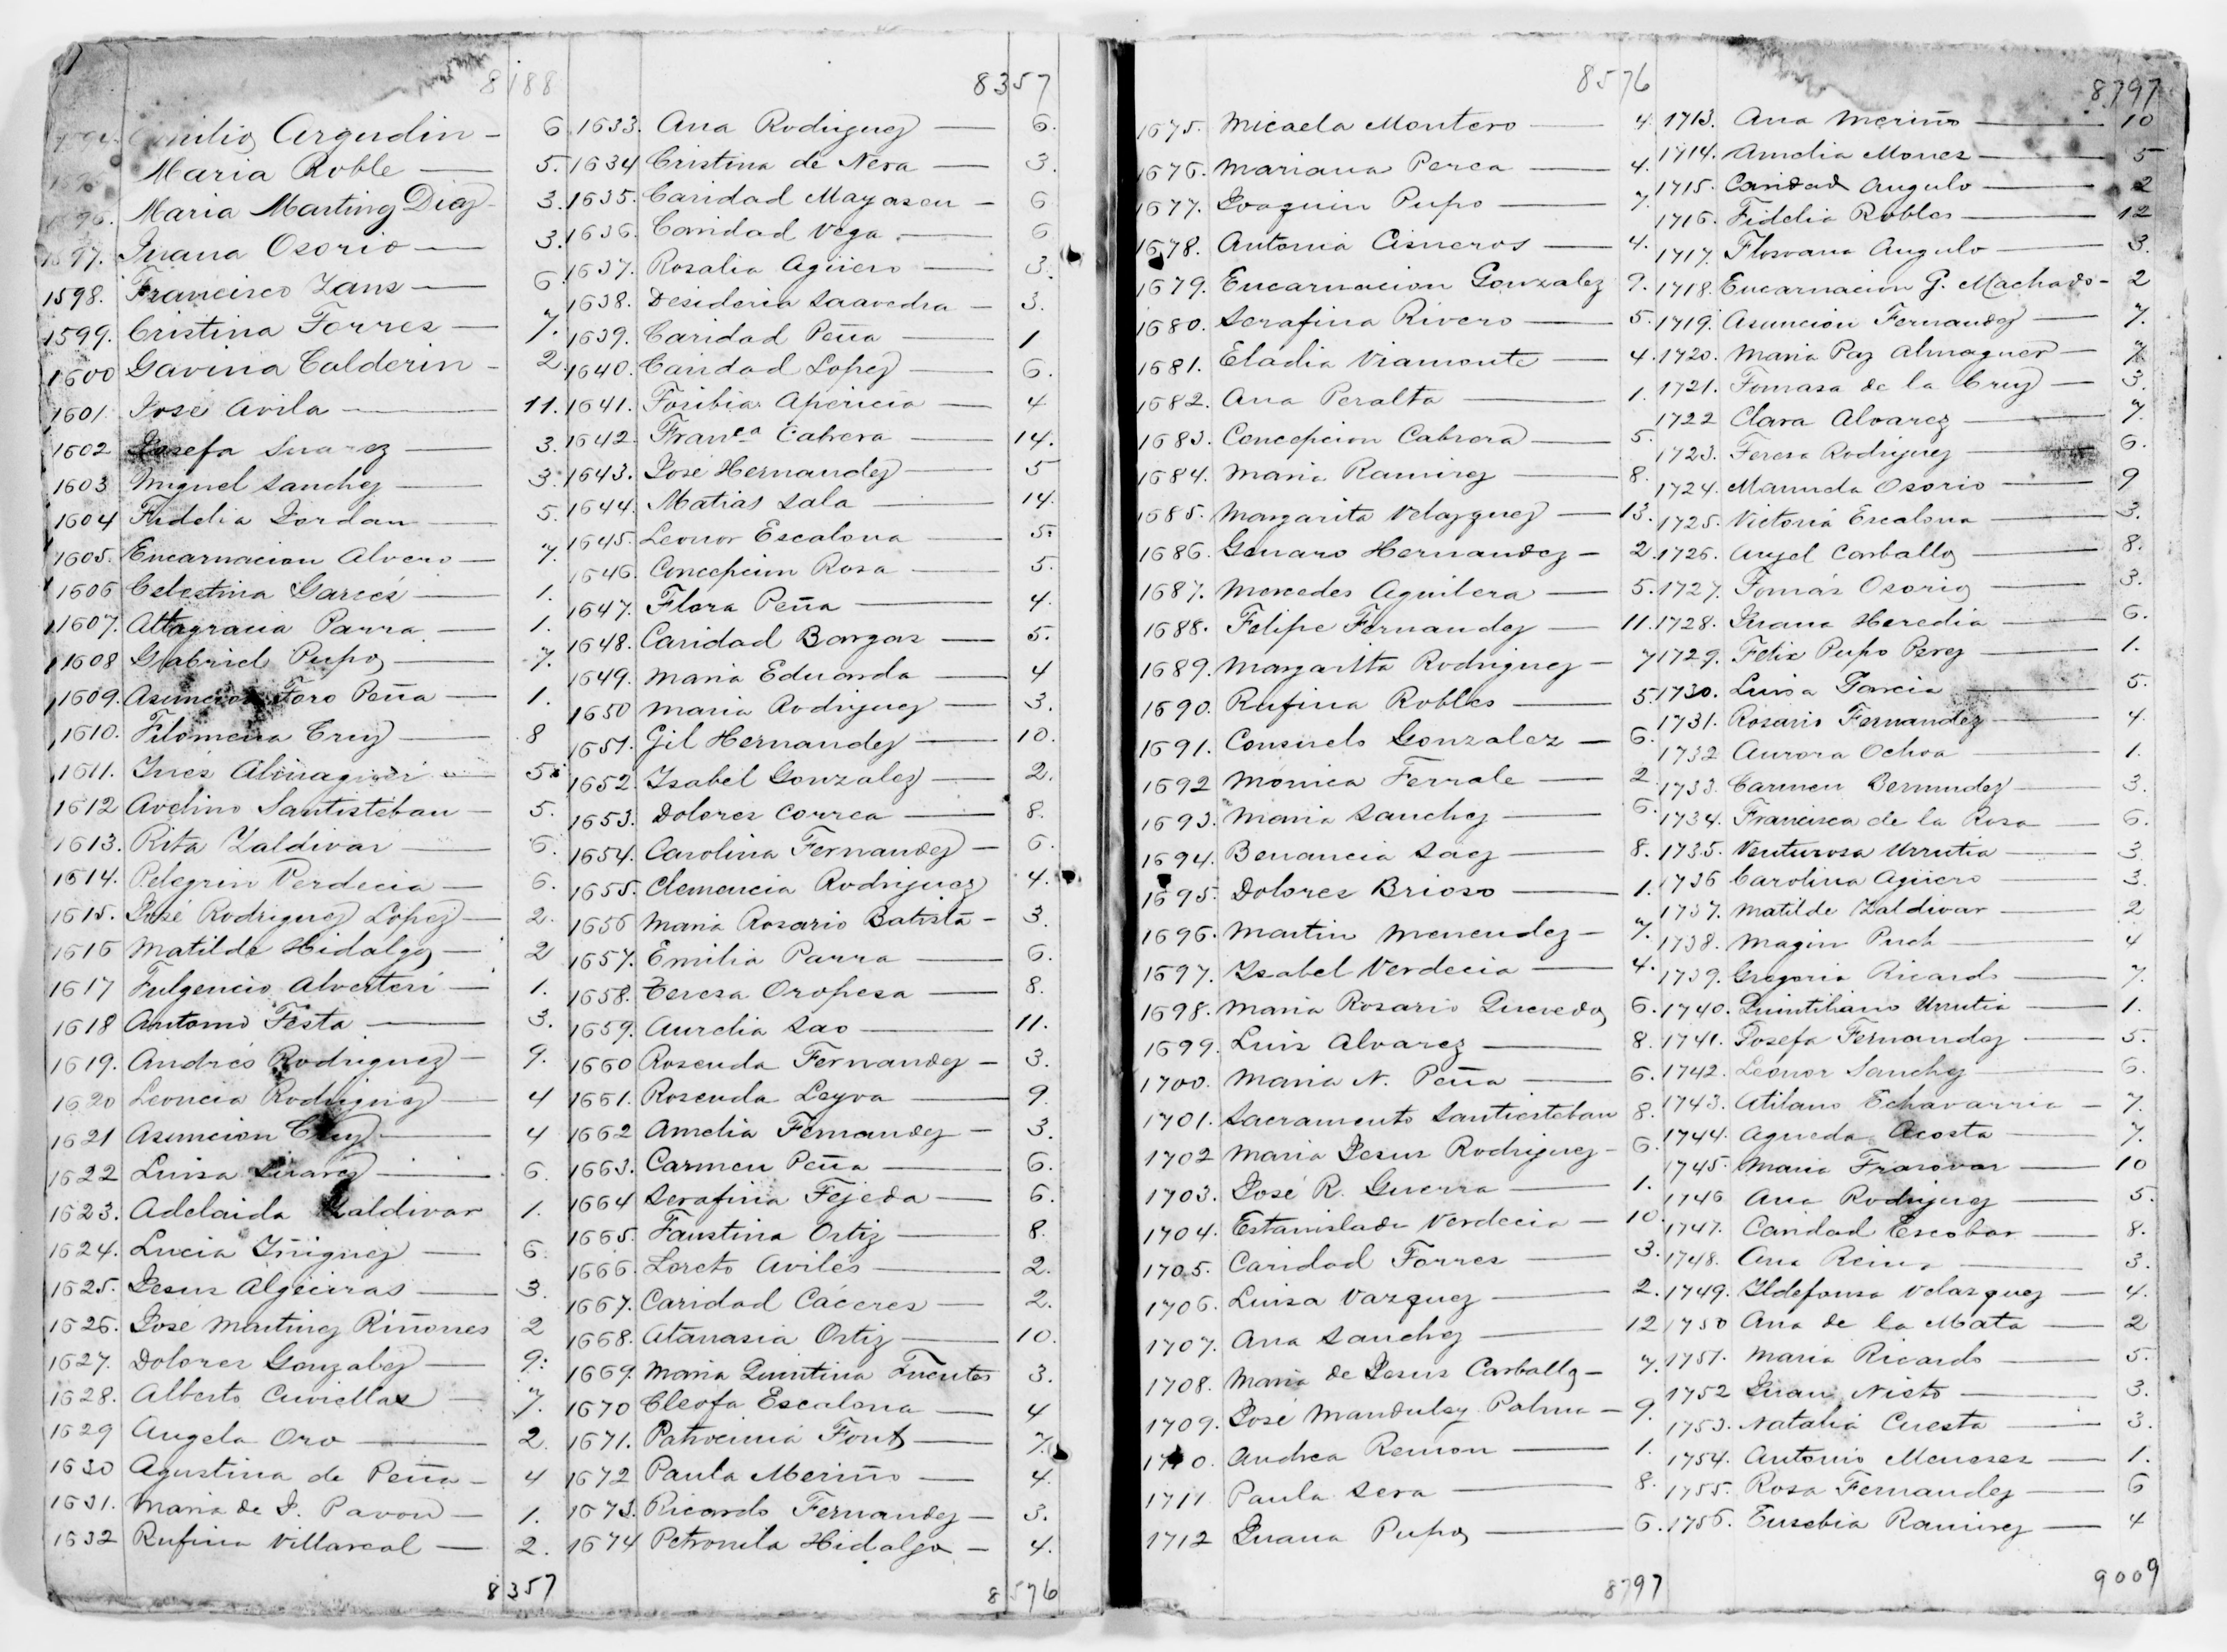 8188
Emilio Argudin — 6
Maria Roble — 5.
1596. Maria Martinez Diaz — 3.
1597. Juana Osorio — 3.
1598. Francisco Zans — 6.
1599. Cristina Torres — 7.
1600 Gavina Calderin — 2
1601. José Avila — 11.
1602 Josefa Suarez — 3.
1603 Miguel Sanchez — 3.
1604 Fidelia Jordan — 5.
1605. Encarnacion Alvero — 7.
1606 Celestina Garcés — 1.
1607. Altagracia Parra — 1.
1608 Gabriel Pupo — 7.
1609. Asuncion Toro Peña — 1.
1610. Filomena Cruz — 8
1611. Ynés — 5.
1612 Avelino Santisteban — 5.
1613. Rita Zaldivar — 6.
1614. Pelegrin Verdecia — 6.
1615. José Rodriguez López — 2.
1616 Matilde Hidalgo — 2
1617 Fulgencio Alverteri — 1.
1618 Antonio Testa — 3.
1619. Andrés Rodriguez — 9.
1620 Leoncia Rodriguez — 4
1621 Asuncion Cruz — 4
1622 Luisa Linares — 6.
1623. Adelaida Zaldivar 1.
1624. Lucia Yñiguez — 6.
1625. Jesus Algeciras — 3.
1626. José Martinez Riñones 2
1627. Dolores Gonzalez — 9.
1628. Alberto Cuviellas — 7.
1629 Angela Oro — 2.
1630 Agustina de Peña — 4
1631. Maria de J. Pavon — 1.
1632 Rufina Villareal — 2.
8357
8357
1633. Ana Rodriguez — 6.
1634 Cristina de Nera — 3.
1635. Caridad Mayason — 6
1636. Caridad Vega — 6
1637. Rosalia Agüero — 3.
1638. Desideria Saavedra — 3.
1639. Caridad Peña — 1
1640. Caridad Lopez — 6.
1641. Toribia Aparicio — 4
1642 Franca Cabrera — 14.
1643. José Hernandez — 5
1644. Matias Sala — 14.
1645. Leonor Escalona — 5.
1646. Concepcion Rosa — 5.
1647. Flora Peña — 4.
1648. Caridad Bargas — 5.
1649. Maria Eduarda — 4
1650 Maria Rodriguez — 3.
1651. Gil Hernandez — 10.
1652. Ysabel Gonzalez — 2.
1653. Dolores Correa — 8.
1654. Carolina Fernandez — 6.
1655. Clemencia Rodriguez 4.
1656 Maria Rosario Batista — 3.
1657. Emilia Parra — 6.
1658. Teresa Oropesa — 8.
1659. Aurelia Sao — 11.
1660 Rosenda Fernandez — 3.
1661. Rosenda Leyva — 9.
1662 Amelia Fernandez — 3.
1663. Carmen Peña — 6.
1664 Serafina Tejeda — 6.
1665. Faustina Ortiz — 8.
1666. Loreto Avilés — 2.
1667. Caridad Cáceres — 2.
1668. Atanasia Ortiz — 10.
1669. Maria Quintina Fuentes 3.
1670 Cleofa Escalona — 4
1671. Patrocinia Font — 7.
1672 Paula Meriño — 4.
1673. Ricardo Fernandez — 3.
1674 Petronila Hidalgo — 4.
8576
8576
1675. Micaela Montero — 4.
1676. Mariana Perea — 4.
1677. Joaquin Pupo — 7.
1678. Antonia Cisneros — 4.
1679. Encarnacion Gonzalez 9.
1680. Serafina Rivero — 5.
1681. Eladia Viamonte — 4.
1682. Ana Peralta — 1.
1683. Concepcion Cabrera — 5.
1684. Maria Ramirez — 8.
1685. Margarita Velazquez — 13.
1686. Genaro Hernandez — 2.
1687. Mercedes Aguilera — 5.
1688. Felipe Fernandez — 11.
1689. Margarita Rodriguez — 7
1690. Rufina Robles — 5.
1691. Consuelo Gonzalez — 6.
1692 Monica Ferrale — 2
1693. Maria Sanchez — 6.
1694. Benancia Saez — 8.
1695. Dolores Brioso — 1.
1696. Martin Menendez — 7.
1697. Ysabel Verdecia — 4.
1698. Maria Rosario Quevedo 6.
1699. Luis Alvarez — 8.
1700. Maria N. Peña — 6.
1701. Sacramento Santiesteban 8.
1702 Maria Jesus Rodriguez — 6.
1703. José R. Guerra — 1.
1704. Estanislada Verdecia — 10.
1705. Caridad Torres — 3.
1706. Luisa Vazquez — 2.
1707. Ana Sanchez — 12
1708. Maria de Jesus Carballo — 7.
1709. José Manduley Palma — 9.
1710. Andrea Remon — 1.
1711 Paula Sera — 8.
1712 Juana Pupo — 6.
8797
8797
1713. Ana Meriño — 10
1714. Amelia Mones — 5
1715. Caridad Angulo — 2
1716. Fidelia Robles — 12
1717. Flosvana Angulo — 3.
1718. Encarnacion G. Machado — 2
1719. Asuncion Fernandez — 7.
1720. Maria Paz Almaguer — 7
1721. Tomasa de la Cruz — 3.
1722 Clara Alvarez — 7.
1723. Teresa Rodriguez — 6.
1724. Manuela Osorio — 9
1725. Victoria Escalona — 3.
1726. Angel Carballo — 8.
1727. Tomás Osorio — 3.
1728. Juana Heredia — 6.
1729. Felix Pupo Perez — 1.
1730. Luisa Garcia — 5.
1731. Rosario Fernandez — 4.
1732 Aurora Ochoa — 1.
1733. Carmen Bermudez — 3.
1734. Francisca de la Rosa — 6.
1735. Venturosa Urrutia — 3.
1736 Carolina Agüero — 3.
1737. Matilde Zaldivar — 2
1738. Magin Puch — 4
1739. Gregoria Ricardo — 7.
1740. Quintiliano Urrutia — 1.
1741. Josefa Fernandez — 5.
1742. Leonor Sanchez — 6.
1743. Atilano Echavarria — 7.
1744. Agueda Acosta — 7.
1745. Maria Frasovar — 10
1746 Ana Rodriguez — 5.
1747. Caridad Escobar — 8.
1748. Ana Reina — 3.
1749. Yldefonsa Velazquez — 4.
1750 Ana de la Mata — 2
1751. Maria Ricardo — 5.
1752 Juan Nieto — 3.
1753. Natalia Cuesta — 3.
1754. Antonio Meneses — 1.
1755. Rosa Fernandez — 6
1756. Eusebia Ramirez — 4
9009